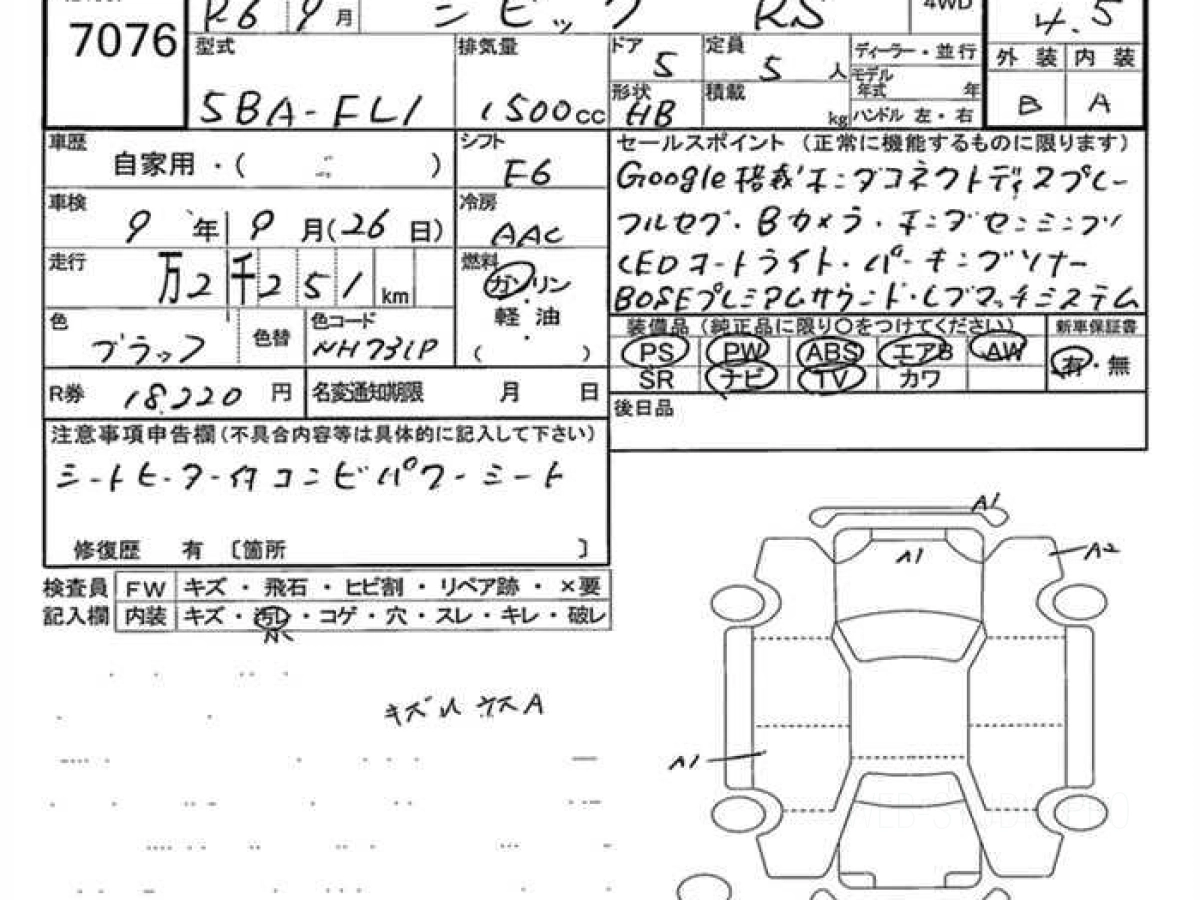 7076
R6 9月 シビック RS 4WD 4.5
型式 5BA-FL1
排気量 1500cc
ドア 5
定員 5人
形状 HB
積載 kg
ディーラー・並行
モデル年式 年
ハンドル 左・右
外装 内装
B A
車歴 自家用・( )
シフト F6
車検 9年9月(26日)
冷房 AAC
走行 2万2千251km
燃料 ガソリン・軽油・( )
色 ブラック 色替
色コード NH731P
R券 18,220円
名変通知期限 月 日
セールスポイント(正常に機能するものに限ります)
Google搭載ホンダコネクトディスプレー
フルセグ・Bカメラ・ホンダセンシング
LEDオートライト・パーキングソナー
BOSEプレミアムサウンド・Lブマッチシステム
装備品(純正品に限り○をつけてください) 新車保証書
PS PW ABS エアB AW 有・無
SR ナビ TV カワ
後日品
注意事項申告欄(不具合内容等は具体的に記入して下さい)
シートヒーター付コンビパワーシート
修復歴 有 〔箇所 〕
検査員 FW キズ・飛石・ヒビ割・リペア跡・×要
記入欄 内装 キズ・汚レ・コゲ・穴・スレ・キレ・破レ
小
キズ小 ウスA
A1
A1
A2
A1